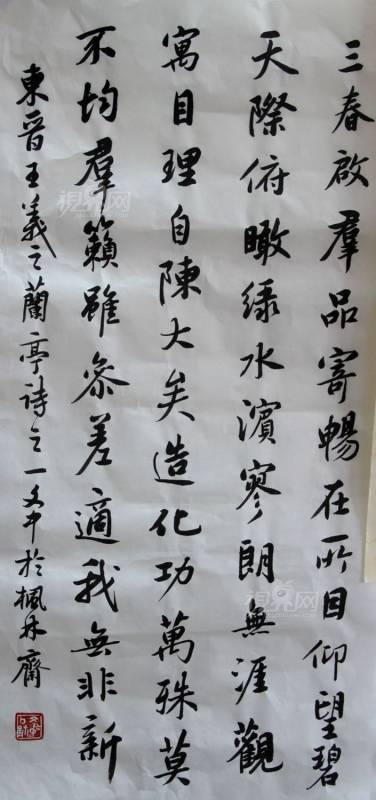 三春啟羣品寄暢在所目仰望碧
天際俯瞰绿水濱寥朗無涯觀
寓目理自陳大矣造化功萬殊莫
不均羣籟雖參差適我無非新
東晉王羲之蘭亭诗之一文中於楓林齋
視界网
視界网